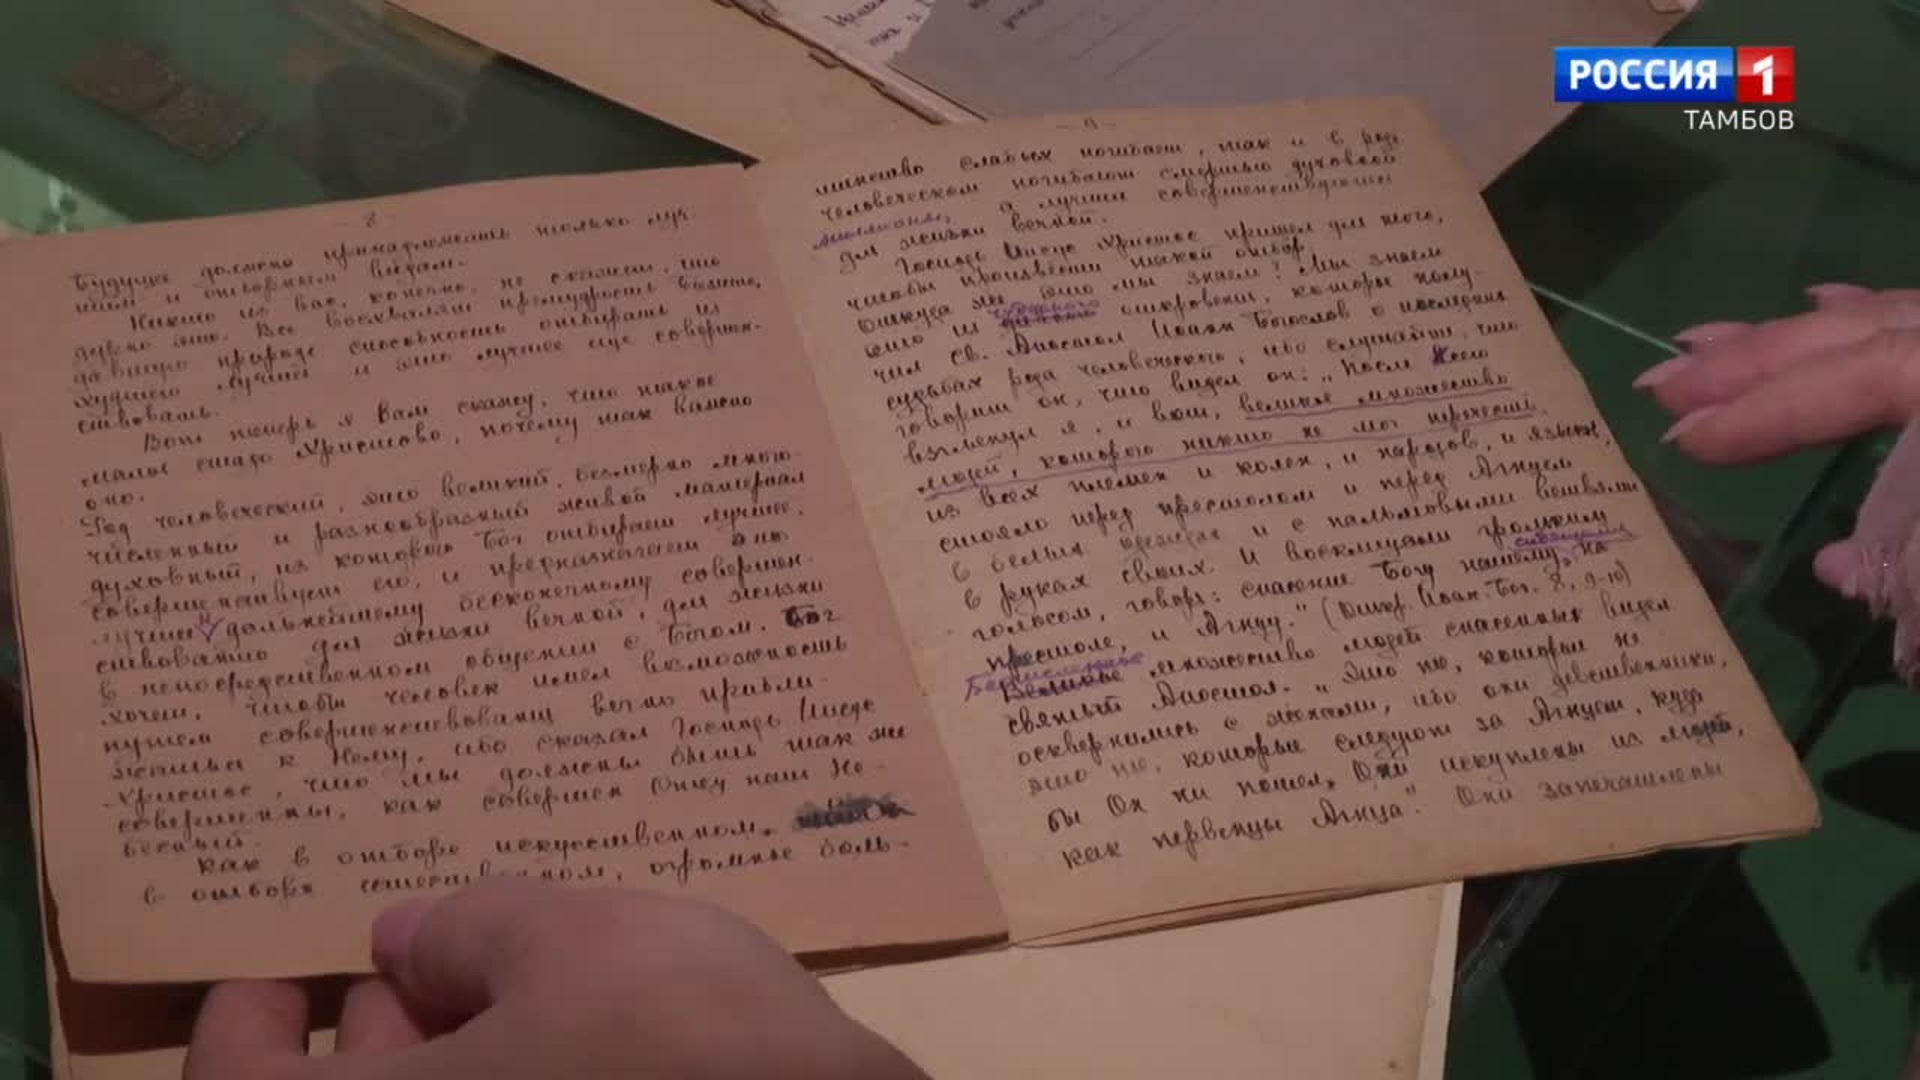 РОССИЯ 1
ТАМБОВ
- 8 -
Будущее должно принадлежать только луч-
шим и отборным видам.
Никто из вас, конечно, не скажет, что
дурно это. Все восхваляли премудрость
природе способность отбирать из
худшего лучшее и это лучшее еще совершен-
ствовать.
Вот теперь я Вам скажу, что такое
малое стадо Христово, почему так важно
оно.
Род человеческий, это великий, безмерно много-
численный и разнообразный живой материал
духовный, из которого Бог отбирает лучшее,
совершенствует его, и предназначает это
лучшее дальнейшему бесконечному совершен-
ствованию для жизни вечной, для жизни
в непосредственном общении с Богом. Бог
хочет, чтобы человек имел возможность
путем совершенствования вечно прибли-
жаться к Нему, ибо сказал Господь Иисус
Христос, что мы должны быть так же
совершенны, как совершен Отец наш Не-
бесный.
Как в отборе искусственном,
в отборе естественном, огромное боль-
- 9 -
шинство слабых погибает, так и в роде
человеческом погибают смертью духовной
миллионы, а лучшие совершенствуются
для жизни вечной.
Господь Иисус Христос пришел для того,
чтобы произвести такой отбор.
Откуда же это мы знаем? Мы знаем
это из чудного откровения, которое полу-
чил св. Апостол Иоанн Богослов о последних
судьбах рода человеческого, ибо слушайте, что
говорит он, что видел он: „После сего
взглянул я, и вот, великое множество
людей, которого никто не мог перечесть,
из всех племен и колен, и народов, и языков,
стояло перед престолом и перед Агнцем
в белых одеждах и с пальмовыми ветвями
в руках своих. И восклицали громким
голосом, говоря: спасение Богу нашему, сидящему на
престоле, и Агнцу." (Откр. Иоан. Бог. 9-10)
Бесчисленное
Великое множество людей спасенных видел
святый Апостол. „Это те, которые не
осквернились с женами, ибо они девственники,
это те, которые следуют за Агнцем, куда
бы Он ни пошел. Они искуплены из людей,
как первенцы Агнца". Они запечатлены